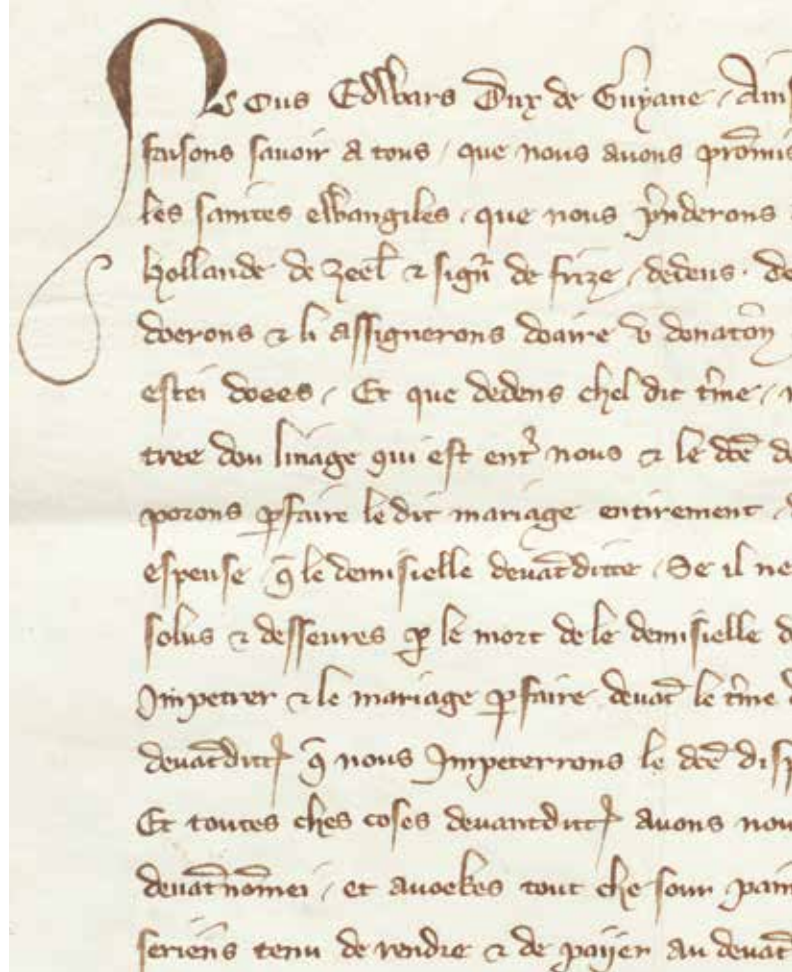 Nous Edwars Dux de Guyane, Ains
faisons savoir a tous, que nous avons promis
les saintes ewangiles, que nous pnderons
Hollande de Zeel & sign de frize, dedens de
doerons & li assignerons doaire v donaton
estei doees, Et que dedens chel dit tme,
tree dou linage qui est ent nous & le dce de
porons pfaire le dit mariage entirement,
espeuse q le demisielle devatditte, Se il ne
solus & desseures p le mort de le demisielle d
Impetrer & le mariage pfaire devat le tme
devatditt q nous Impeterrons le dce disp
Et toutes ches coses devantditt avons nou
devatnomei, et avoekes tout che sour pain
seriens tenu de rendre & de paijer au devat